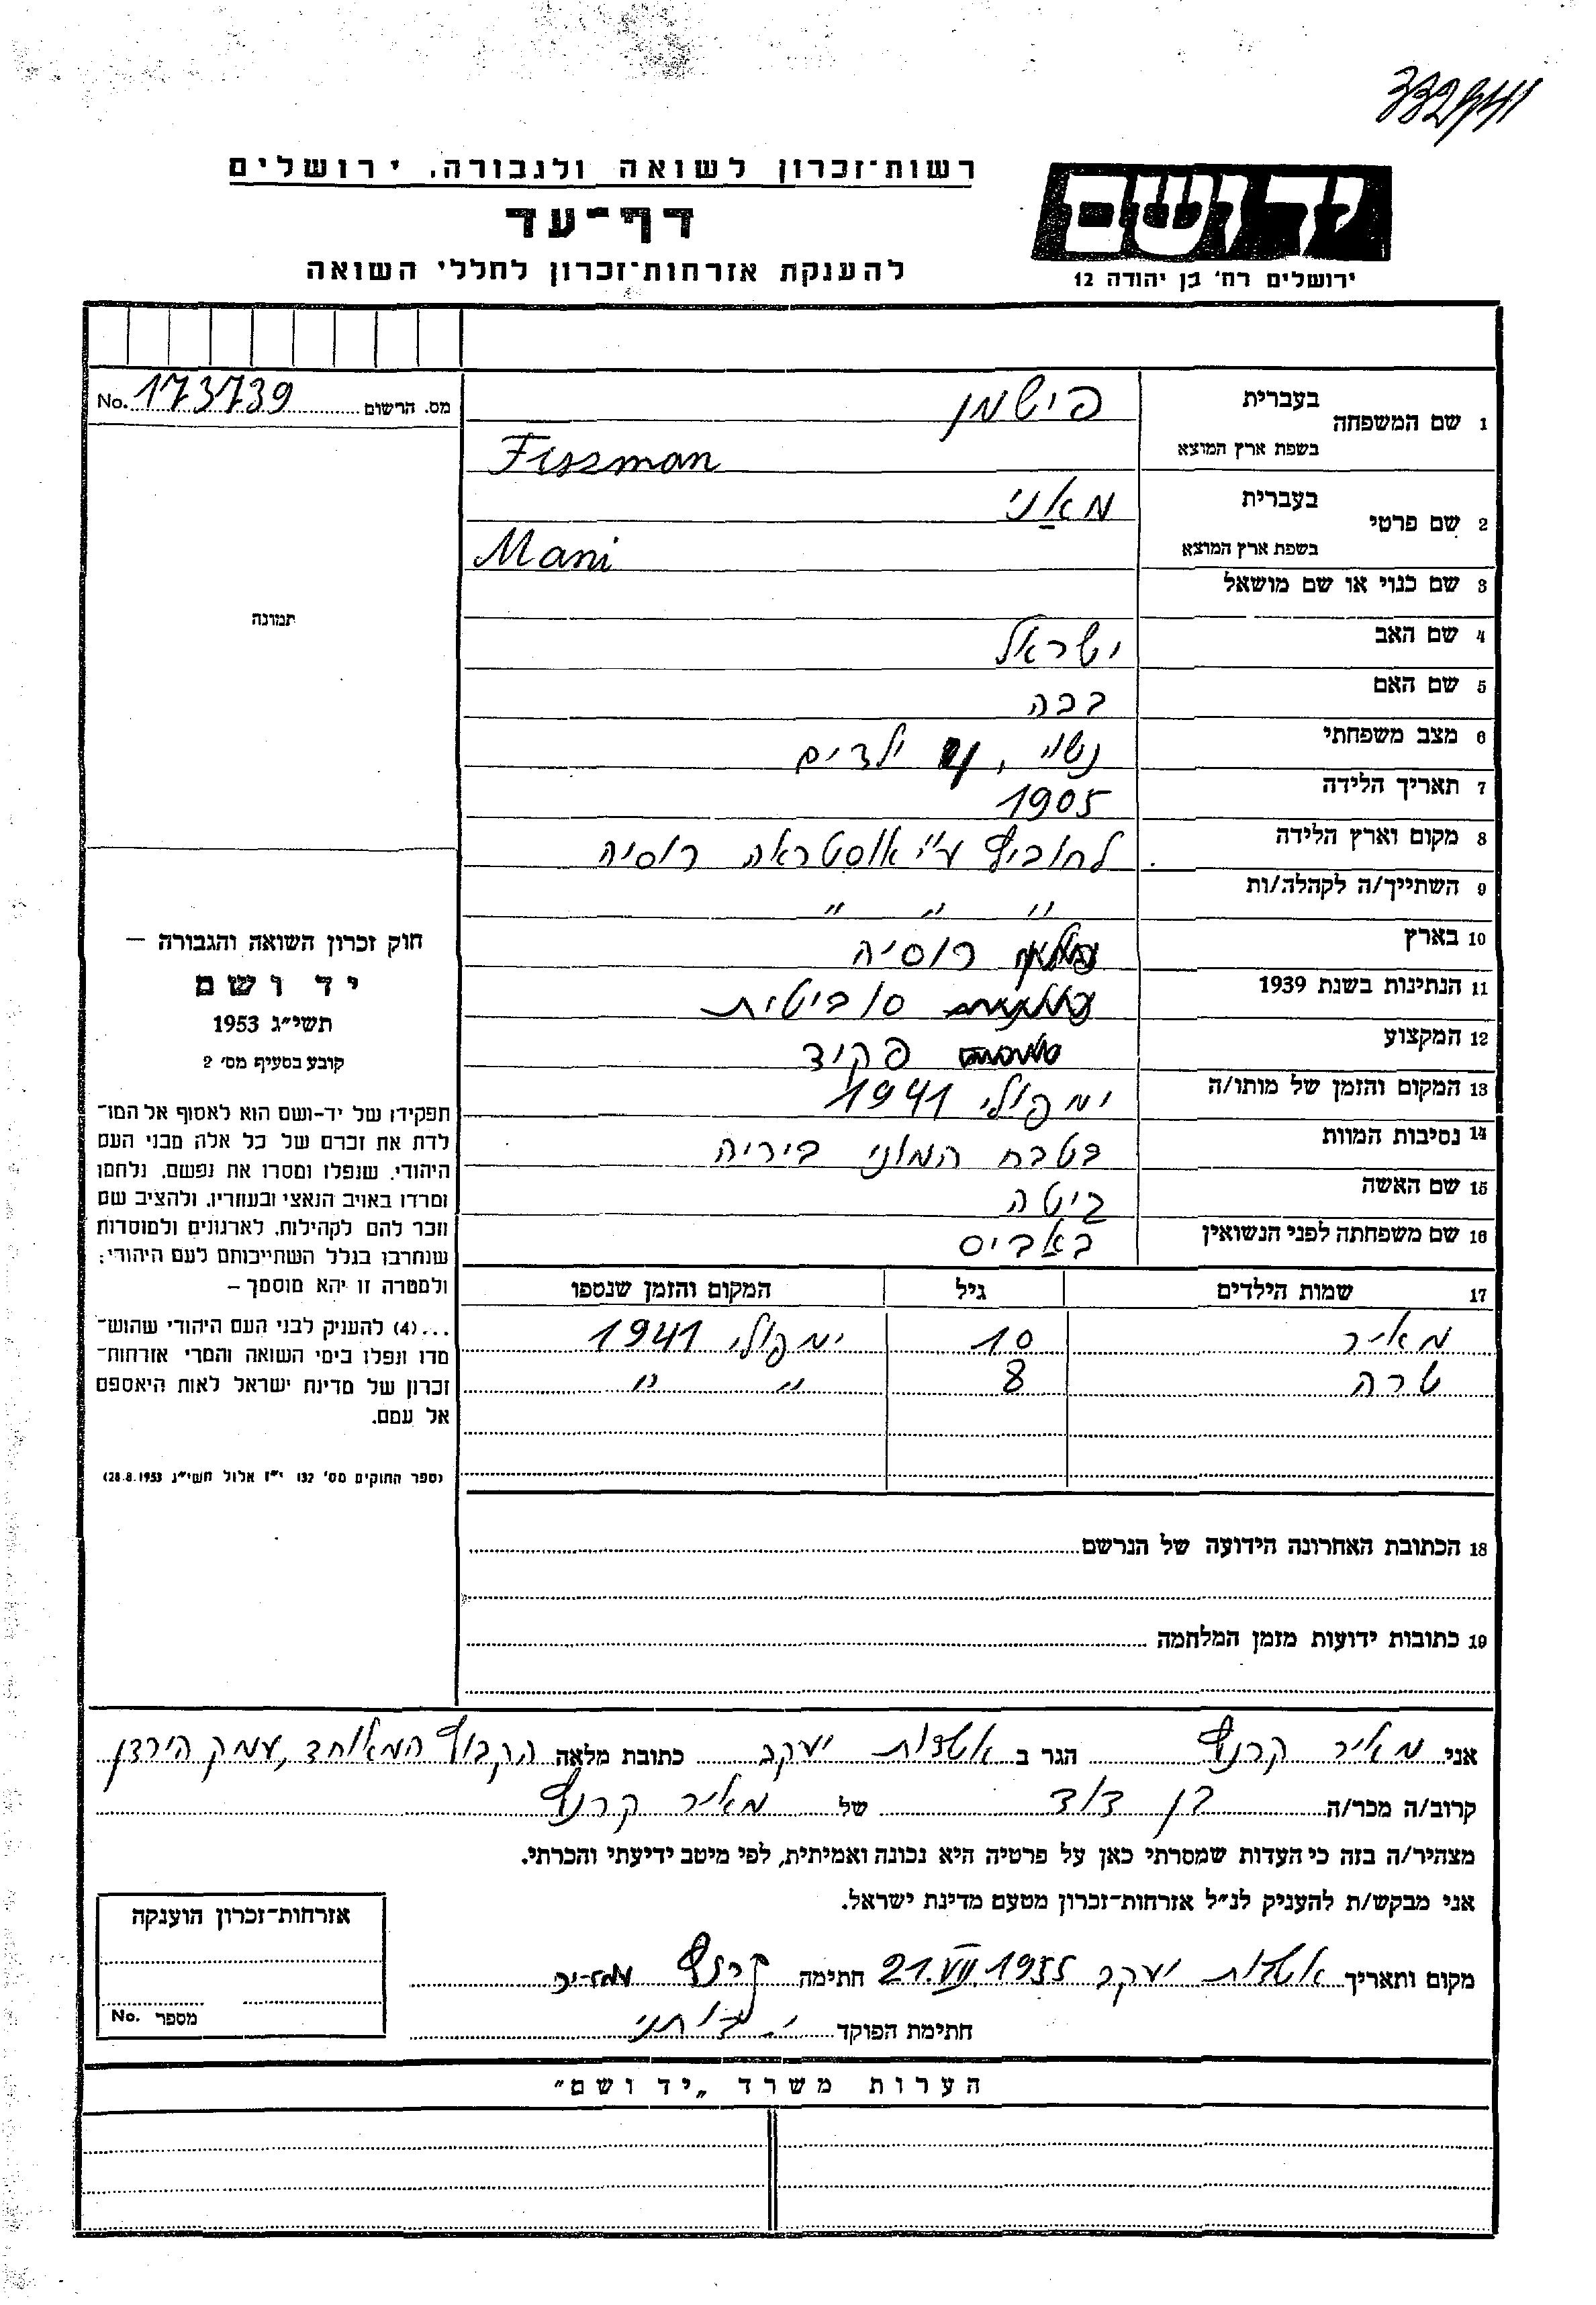 332941
רשות־זכרון לשואה ולגבורה, ירושלים
דף־עד
להענקת אזרחות־זכרון לחללי השואה
יד ושם
ירושלים רח׳ בן יהודה 12
מס. הרשום 173739 No.
1 שם המשפחה בעברית פישמן
בשפת ארץ המוצא Fiszman
2 שם פרטי בעברית מאַני
בשפת ארץ המוצא Mani
3 שם כנוי או שם מושאל
4 שם האב ישראל
5 שם האם
6 מצב משפחתי נשוי, ילדים
7 תאריך הלידה 1905
8 מקום וארץ הלידה ע״י רוסיה
9 השתייך/ה לקהלה/ות " " "
10 בארץ רוסיה
11 הנתינות בשנת 1939 סוביטית
12 המקצוע פקיד
13 המקום והזמן של מותו/ה ימפולי 1941
14 נסיבות המוות בטבח המוני ביריה
15 שם האשה ביטה
16 שם משפחתה לפני הנשואין באביס
17 שמות הילדים גיל המקום והזמן שנספו
מאיר 10 ימפולי 1941
שרה 8 " "
18 הכתובת האחרונה הידועה של הנרשם
19 כתובות ידועות מזמן המלחמה
תמונה
חוק זכרון השואה והגבורה –
יד ושם
תשי״ג 1953
קובע בסעיף מס׳ 2
תפקידו של יד־ושם הוא לאסוף אל המו־
לדת את זכרם של כל אלה מבני העם
היהודי, שנפלו ומסרו את נפשם, נלחמו
ומרדו באויב הנאצי ובעוזריו, ולהציב שם
וזכר להם לקהילות, לארגונים ולמוסדות
שנחרבו בגלל השתייכותם לעם היהודי;
ולמטרה זו יהא מוסמך –
...(4) להעניק לבני העם היהודי שהוש־
מדו ונפלו בימי השואה והמרי אזרחות־
זכרון של מדינת ישראל לאות היאספם
אל עמם.
(ספר החוקים מס׳ 132 י״ז אלול תשי״ג 28.8.1953)
אני מאיר קרנף הגר ב אשדות יעקב כתובת מלאה הקבוץ המאוחד, עמק הירדן
קרוב/ה מכר/ה בן דוד של מאיר קרנף
מצהיר/ה בזה כי העדות שמסרתי כאן על פרטיה היא נכונה ואמיתית, לפי מיטב ידיעתי והכרתי.
אני מבקש/ת להעניק לנ״ל אזרחות־זכרון מטעם מדינת ישראל.
מקום ותאריך אשדות יעקב 21.VII.1955 חתימה קרנף מאיר
חתימת הפוקד
אזרחות־זכרון הוענקה
מספר No.
הערות משרד „יד ושם"